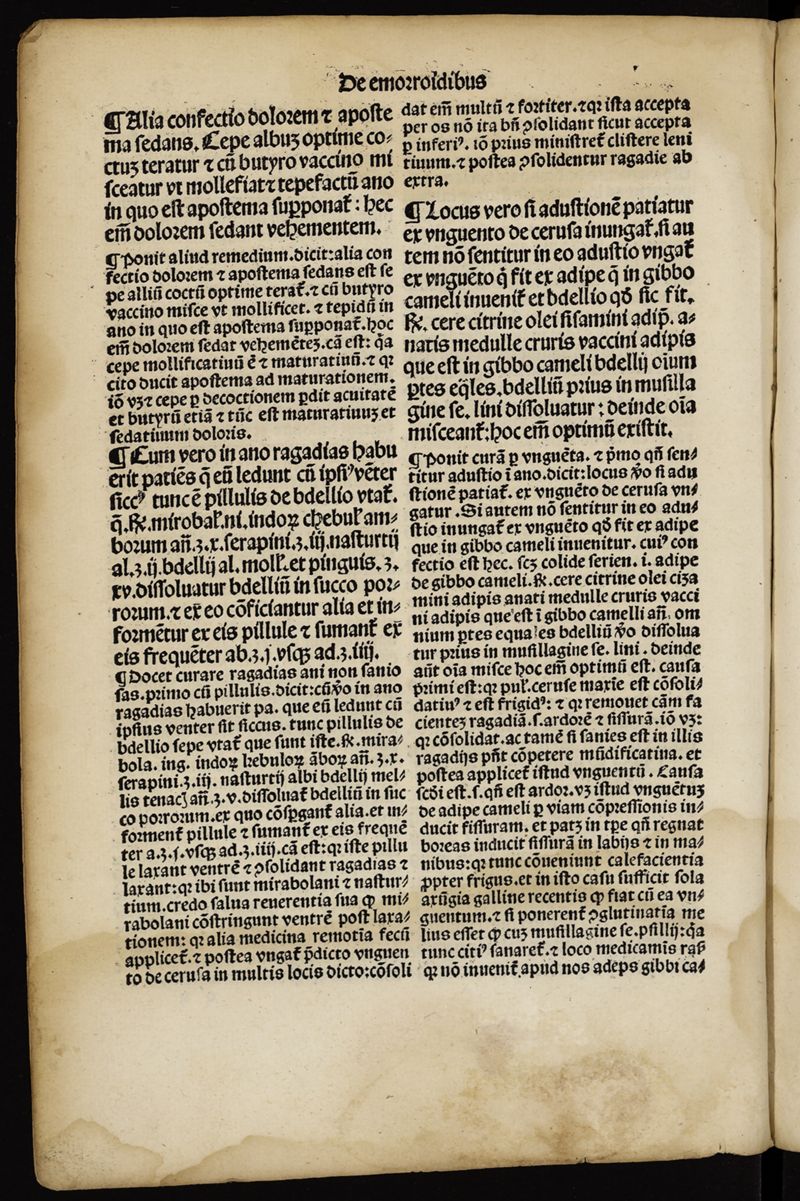 De emorroidibus
¶Alia confectio dolorem ⁊ aposte
ma sedans. Cepe albuʒ optime co⸗
ctuʒ teratur ⁊ cū butyro vaccino mi
sceatur vt mollefiat⁊ tepefactū ano
in quo est apostema supponat᷑: hec
em̄ dolorem sedant vehementem.
¶Ponit aliud remedium.dicit:alia con
fectio dolorem ⁊ apostema sedans est se
pe alliū coctū optime terat᷑.⁊ cū butyro
vaccino misce vt mollificet. ⁊ tepidū in
ano in quo est apostema supponat᷑.hoc
em̄ dolorem sedat vehemēteʒ.cā est: q̄a
cepe mollificatiuū ē ⁊ maturatiuū.⁊ qꝛ
cito ducit apostema ad maturationem.
iō vʒ⁊ cepe ꝑ decoctionem ꝑdit acuitatē
et butyrū etiā ⁊ tūc est maturatiuuʒ et
sedatiuum doloris.
¶Cum vero in ano ragadias habu
erit patiēs q̄ eū ledunt cū ipsiꝰ vēter
siccꝰ tunc ē pillulis de bdellio vtat᷑.
q̄.℞.mirobal᷑.ni.indoꝝ chebul᷑ am⸗
borum an̄.ʒ.x.serapini.ʒ.iij.nasturtij
al.ʒ.ij.bdellij al.moll᷑.et pinguis.ʒ.
xv.dissoluatur bdelliū in succo por⸗
rorum.⁊ ex eo cōficiantur alia et in⸗
formētur ex eis pillule ⁊ sumant᷑ ex
eis frequēter ab.ʒ.j.vsqꝫ ad.ʒ.iiij.
¶Docet curare ragadias ani non sanio
sas.primo cū pillulis.dicit:cū ꝟo in ano
ragadias habuerit pa. que eū ledunt cū
ipsius venter sit siccus. tunc pillulis de
bdellio sepe vtat᷑ que sunt iste.℞.mira⸗
bola. ing. indoꝝ kebuloꝝ āboꝝ an̄. ʒ.x.
serapini.ʒ.iij. nasturtij albi bdellij mel⸗
lis tenacꝭ an̄.ʒ.v.dissoluat᷑ bdelliū in suc
co porrorum.ex quo cōspgant᷑ alia.et in⸗
forment᷑ pillule ⁊ sumant᷑ ex eis frequē
ter a.ʒ.j.vsqꝫ ad.ʒ.iiij.cā est:qꝛ iste pillu
le laxant ventrē ⁊ ꝯsolidant ragadias ⁊
laxant:qꝛ ibi sunt mirabolani ⁊ nastur⸗
tium.credo salua reuerentia sua ꝙ mi⸗
rabolani cōstringunt ventrē post laxa⸗
tionem: qꝛ alia medicina remotīa fecū
applicet᷑.⁊ postea vngat᷑ p̄dicto vnguen
to de cerusa in multis locis dicto:cōsoli
dat em̄ multū ⁊ fortiter.⁊qꝛ ista accepta
per os nō ita bn̄ ꝯsolidant sicut accepta
ꝑ inferiꝰ. iō prius ministret᷑ clistere leni
tiuum.⁊ postea ꝯsolidentur ragadie ab
extra.
¶Locus vero si adustionē patiatur
ex vnguento de cerusa inungat᷑.si au
tem nō sentitur in eo adustio vngat᷑
ex vnguēto q̄ fit ex adipe q̄ in gibbo
cameli inuenit᷑ et bdellio qḋ sic fit.
℞. cere citrine olei sisamini adip̄. a⸗
natis medulle cruris vaccini adipis
que est in gibbo cameli bdellij oium
ꝑtes eq̄les.bdelliū prius in musilla
gine se. lini dissoluatur: deinde oīa
misceant᷑:hoc em̄ optimū existit.
¶Ponit curā ꝑ vnguēta. ⁊ p̄mo qn̄ sen⸗
titur adustio ī ano.dicit:locus ꝟo si adu
stionē patiat᷑. ex vnguēto de cerusa vn⸗
gatur .Si autem nō sentitur in eo adu⸗
stio inungat᷑ ex vnguēto qḋ fit ex adipe
que in gibbo cameli inuenitur. cuiꝰ con
fectio est hec. scʒ colide serien. i. adipe
de gibbo cameli.℞.cere citrine olei ciʒa
mini adipis anati medulle cruris vacci
ni adipis que est ī gibbo camelli an̄. om
nium ꝑtes equales bdelliū ꝟo dissolua
tur prius in musillagine se. lini . deinde
aūt oīa misce hoc em̄ optimū est. causa
p̄rimi est:qꝛ pul᷑.ceruse maxīe est cōsoli⸗
datiuꝰ ⁊ est frigidꝰ: ⁊ qꝛ remouet cām fa
cienteʒ ragadiā.s.ardorē ⁊ fissurā.iō vʒ:
qꝛ cōsolidat.ac tamē si sanies est in illis
ragadijs pn̄t cōpetere mūdificatiua. et
postea applicet᷑ istud vnguentū . Causa
scḋi est.s.qn̄ est ardor.vʒ istud vnguētuʒ
de adipe cameli ꝑ viam cōpressionis in⸗
ducit fissuram. et patʒ in tpe qn̄ regnat
boreas inducit fissurā in labijs ⁊ in ma⸗
nibus:qꝛ tunc cōueniunt calefacientia
ꝓpter frigus.et in isto casu sufficit sola
axūgia galline recentis ꝙ fiat cū ea vn⸗
guentum.⁊ si ponerent᷑ ꝯglutinatīa me
lius esset ꝙ cuʒ musillagine se.psillij:q̄a
tunc citiꝰ sanaret᷑.⁊ loco medicamīs rap̄
qꝛ nō inuenit᷑ apud nos adeps gibbi ca⸗